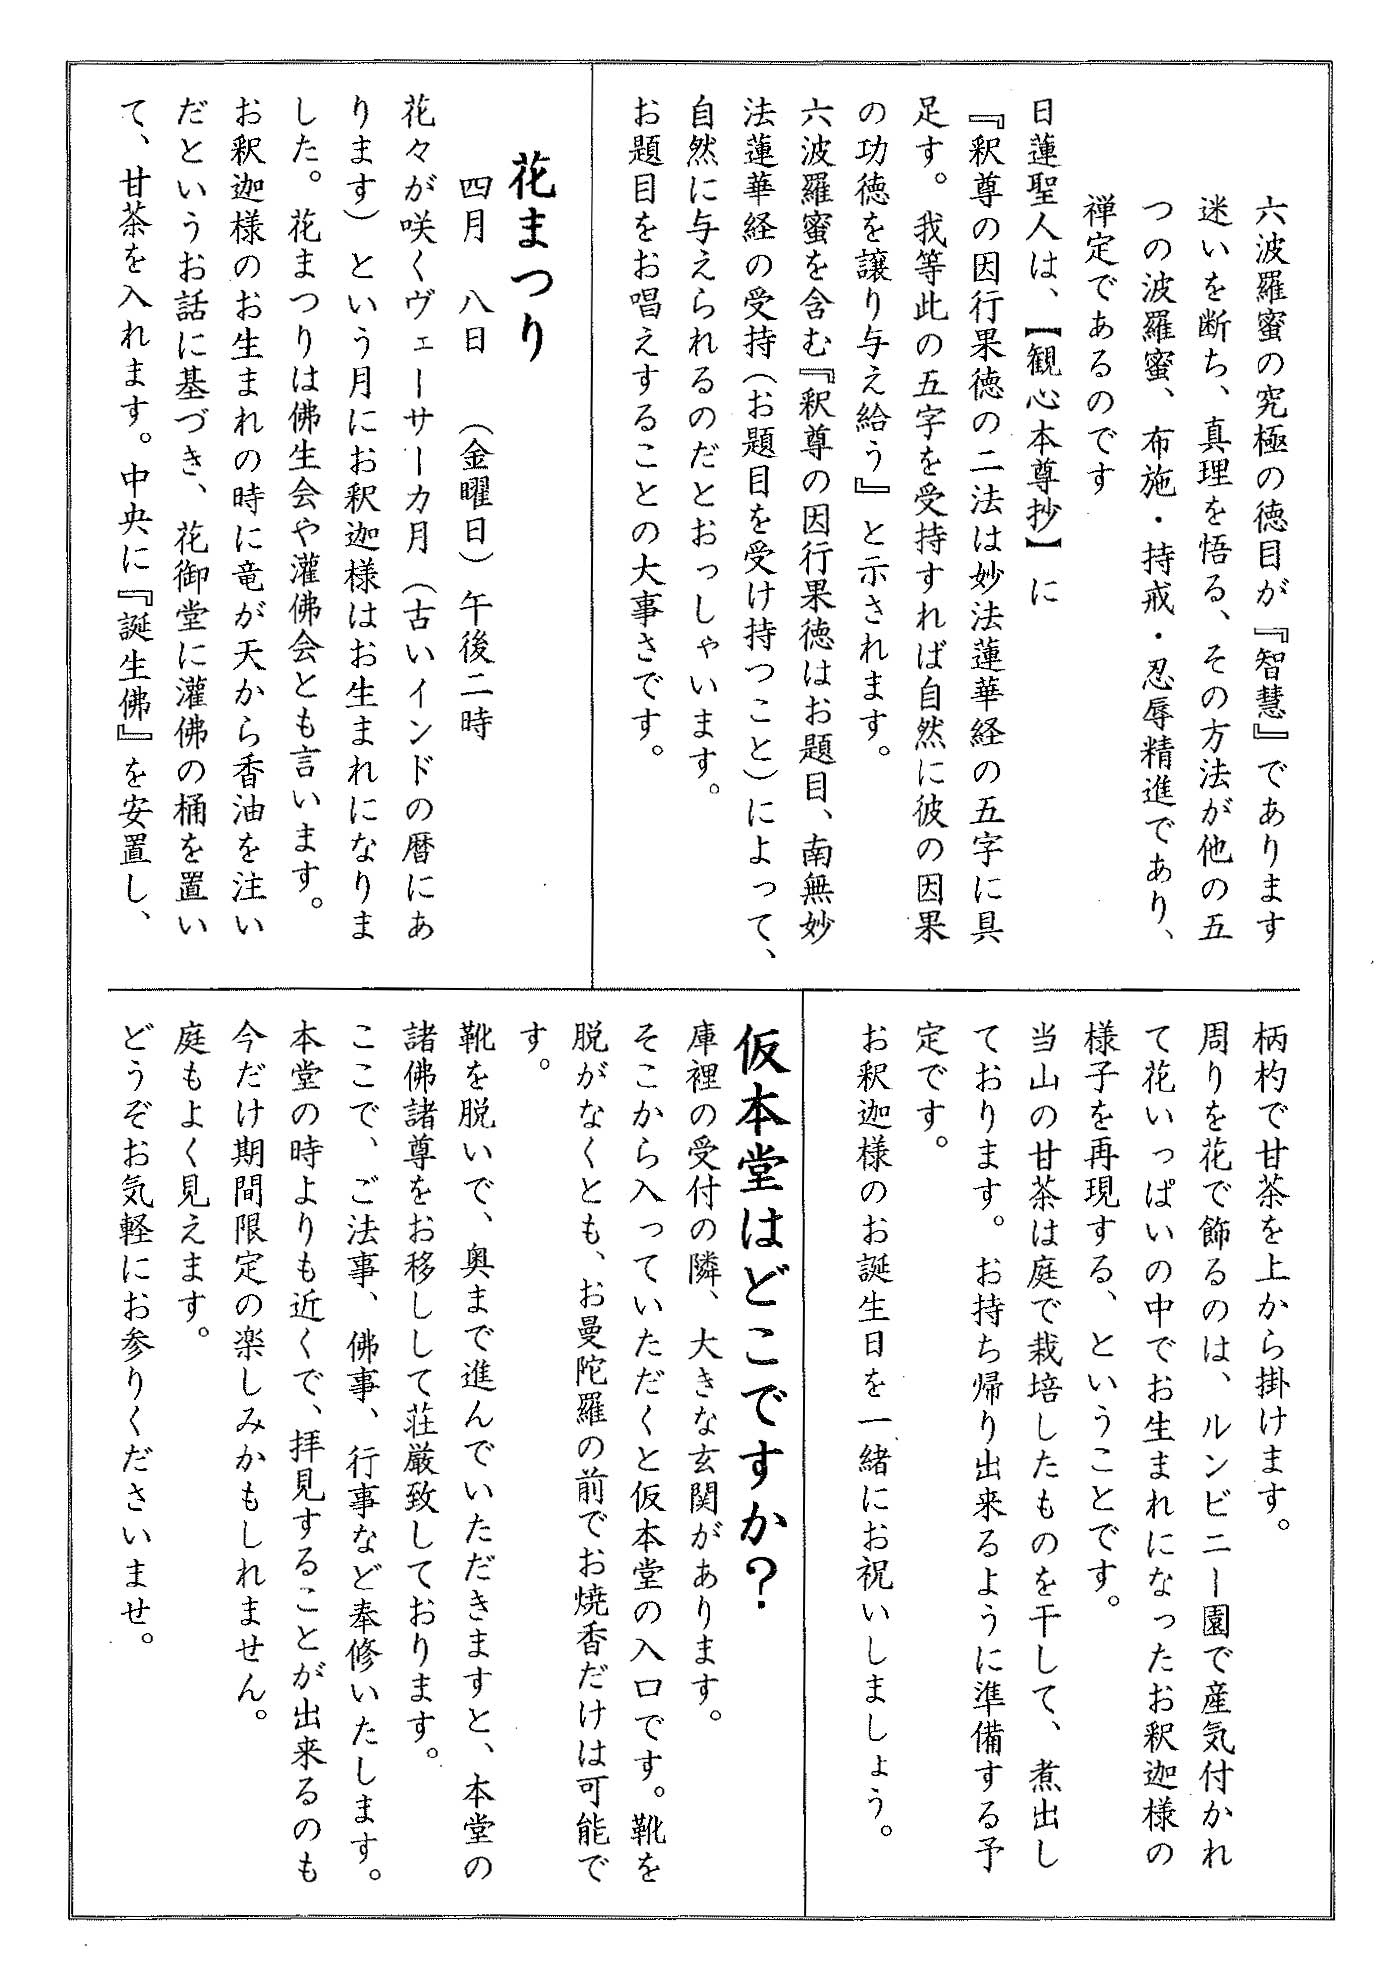 六波羅蜜の究極の徳目が『智慧』であります
迷いを断ち、真理を悟る、その方法が他の五
つの波羅蜜、布施・持戒・忍辱精進であり、
禅定であるのです
日蓮聖人は、【観心本尊抄】に
『釈尊の因行果徳の二法は妙法蓮華経の五字に具
足す。我等此の五字を受持すれば自然に彼の因果
の功徳を譲り与え給う』と示されます。
六波羅蜜を含む『釈尊の因行果徳はお題目、南無妙
法蓮華経の受持（お題目を受け持つこと）によって、
自然に与えられるのだとおっしゃいます。
お題目をお唱えすることの大事さです。
花まつり
四月　八日　（金曜日）午後二時
花々が咲くヴェーサーカ月（古いインドの暦にあ
ります）という月にお釈迦様はお生まれになりま
した。花まつりは佛生会や灌佛会とも言います。
お釈迦様のお生まれの時に竜が天から香油を注い
だというお話に基づき、花御堂に灌佛の桶を置い
て、甘茶を入れます。中央に『誕生佛』を安置し、
柄杓で甘茶を上から掛けます。
周りを花で飾るのは、ルンビニー園で産気付かれ
て花いっぱいの中でお生まれになったお釈迦様の
様子を再現する、ということです。
当山の甘茶は庭で栽培したものを干して、煮出し
ております。お持ち帰り出来るように準備する予
定です。
お釈迦様のお誕生日を一緒にお祝いしましょう。
仮本堂はどこですか？
庫裡の受付の隣、大きな玄関があります。
そこから入っていただくと仮本堂の入口です。靴を
脱がなくとも、お曼陀羅の前でお焼香だけは可能で
す。
靴を脱いで、奥まで進んでいただきますと、本堂の
諸佛諸尊をお移しして荘厳致しております。
ここで、ご法事、佛事、行事など奉修いたします。
本堂の時よりも近くで、拝見することが出来るのも
今だけ期間限定の楽しみかもしれません。
庭もよく見えます。
どうぞお気軽にお参りくださいませ。